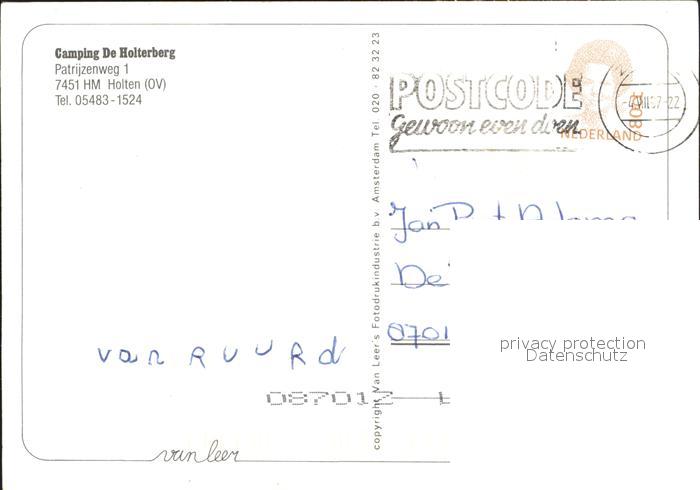 Camping De Holterberg
Patrijzenweg 1
7451 HM Holten (OV)
Tel. 05483-1524
copyright Van Leer's Fotodrukindustrie b.v. Amsterdam Tel. 020 - 82 32 23
POSTCODE
gewoon even doen
NEDERLAND
Jan
De
8701
van RUURd
087012
van leer
privacy protection
Datenschutz